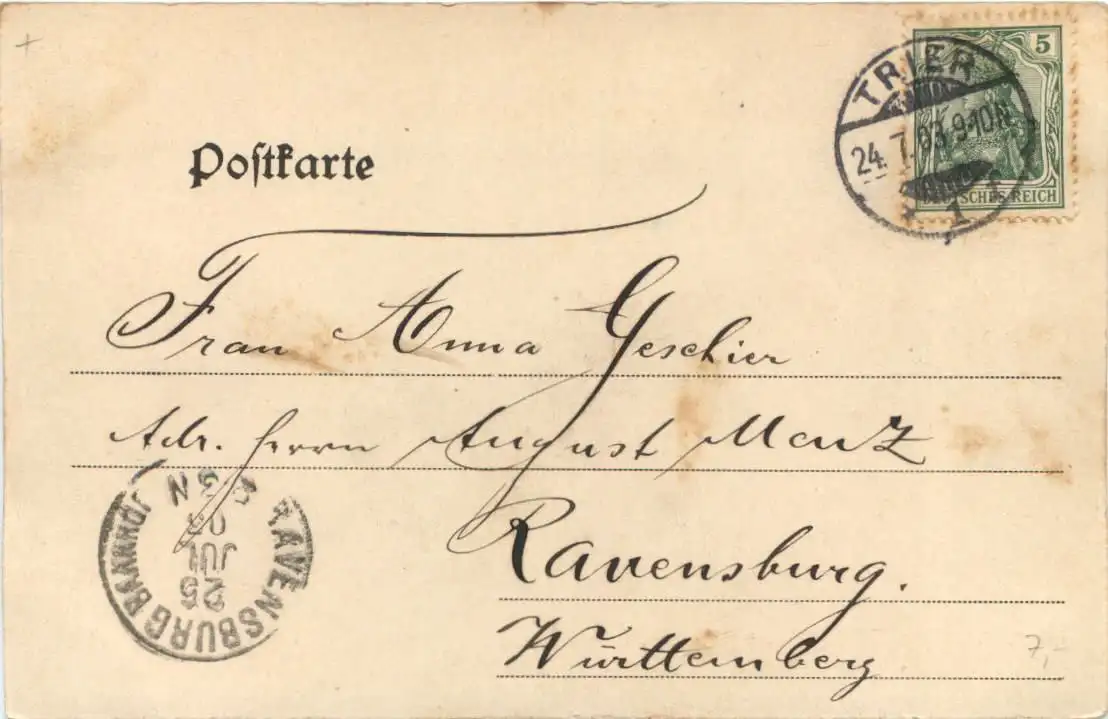 5
TRIER
24.7.03.9-10N.
* 1 *
DEUTSCHES REICH
Postkarte
Frau Anna Geschier
Adr. Herrn August Menz
Ravensburg.
Württemberg
RAVENSBURG BAHNHOF
25
JUL
03
N
7,-